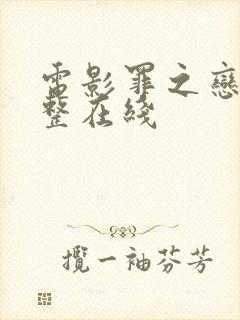 電影罪之戀
整在綫
攬一袖芬芳